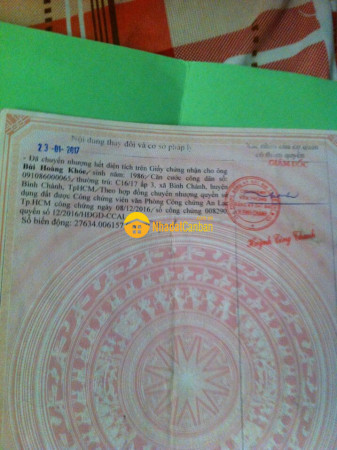 Nội dung thay đổi và cơ sở pháp lý
23-01-2017
- Đã chuyển nhượng hết diện tích trên Giấy chứng nhận cho ông
Bùi Hoàng Khôe, sinh năm: 1986, Căn cước công dân số:
091086000065, thường trú: C16/17 ấp 3, xã Bình Chánh, huyện
Bình Chánh, Tp.HCM, Theo hợp đồng chuyển nhượng quyền sử
dụng đất được Công chứng viên văn Phòng Công chứng An Lạc
Tp.HCM công chứng ngày 08/12/2016, số công chứng 008290
quyển số 12/2016/HĐGD-CCAL
Số biến động: 27634.006157
GIÁM ĐỐC
Huỳnh Công Thành
NhadatCanban